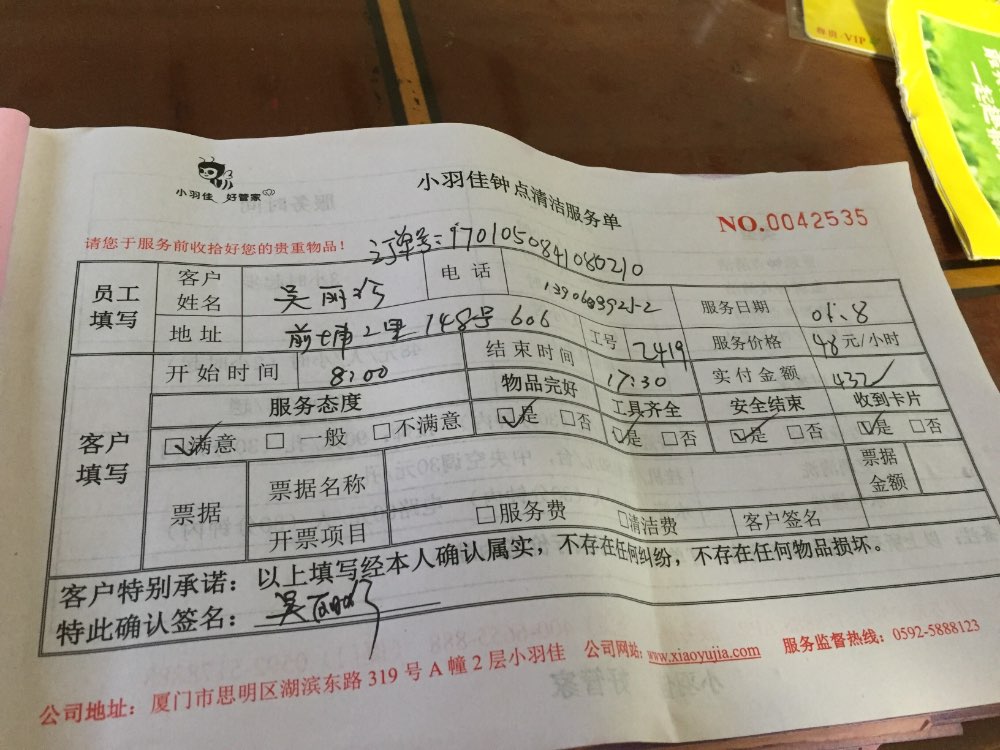 尊贵 VIP
小羽佳 好管家
小羽佳钟点清洁服务单
NO.0042535
请您于服务前收拾好您的贵重物品！
订单号：9701050841080210
员工填写 客户姓名 吴丽 电话 服务日期 01.8
地址 前埔二里 148号 606 工号 2419 服务价格 48元/小时
客户填写 开始时间 8:00 结束时间 17:30 实付金额 432
服务态度 物品完好 工具齐全 安全结束 收到卡片
☑满意 □一般 □不满意 ☑是 □否 ☑是 □否 ☑是 □否 ☑是 □否
票据 票据名称 票据金额
开票项目 □服务费 □清洁费 客户签名
客户特别承诺：以上填写经本人确认属实，不存在任何纠纷，不存在任何物品损坏。
特此确认签名：吴丽
公司地址：厦门市思明区湖滨东路 319 号 A 幢 2 层小羽佳 公司网站：www.xiaoyujia.com 服务监督热线：0592-5888123